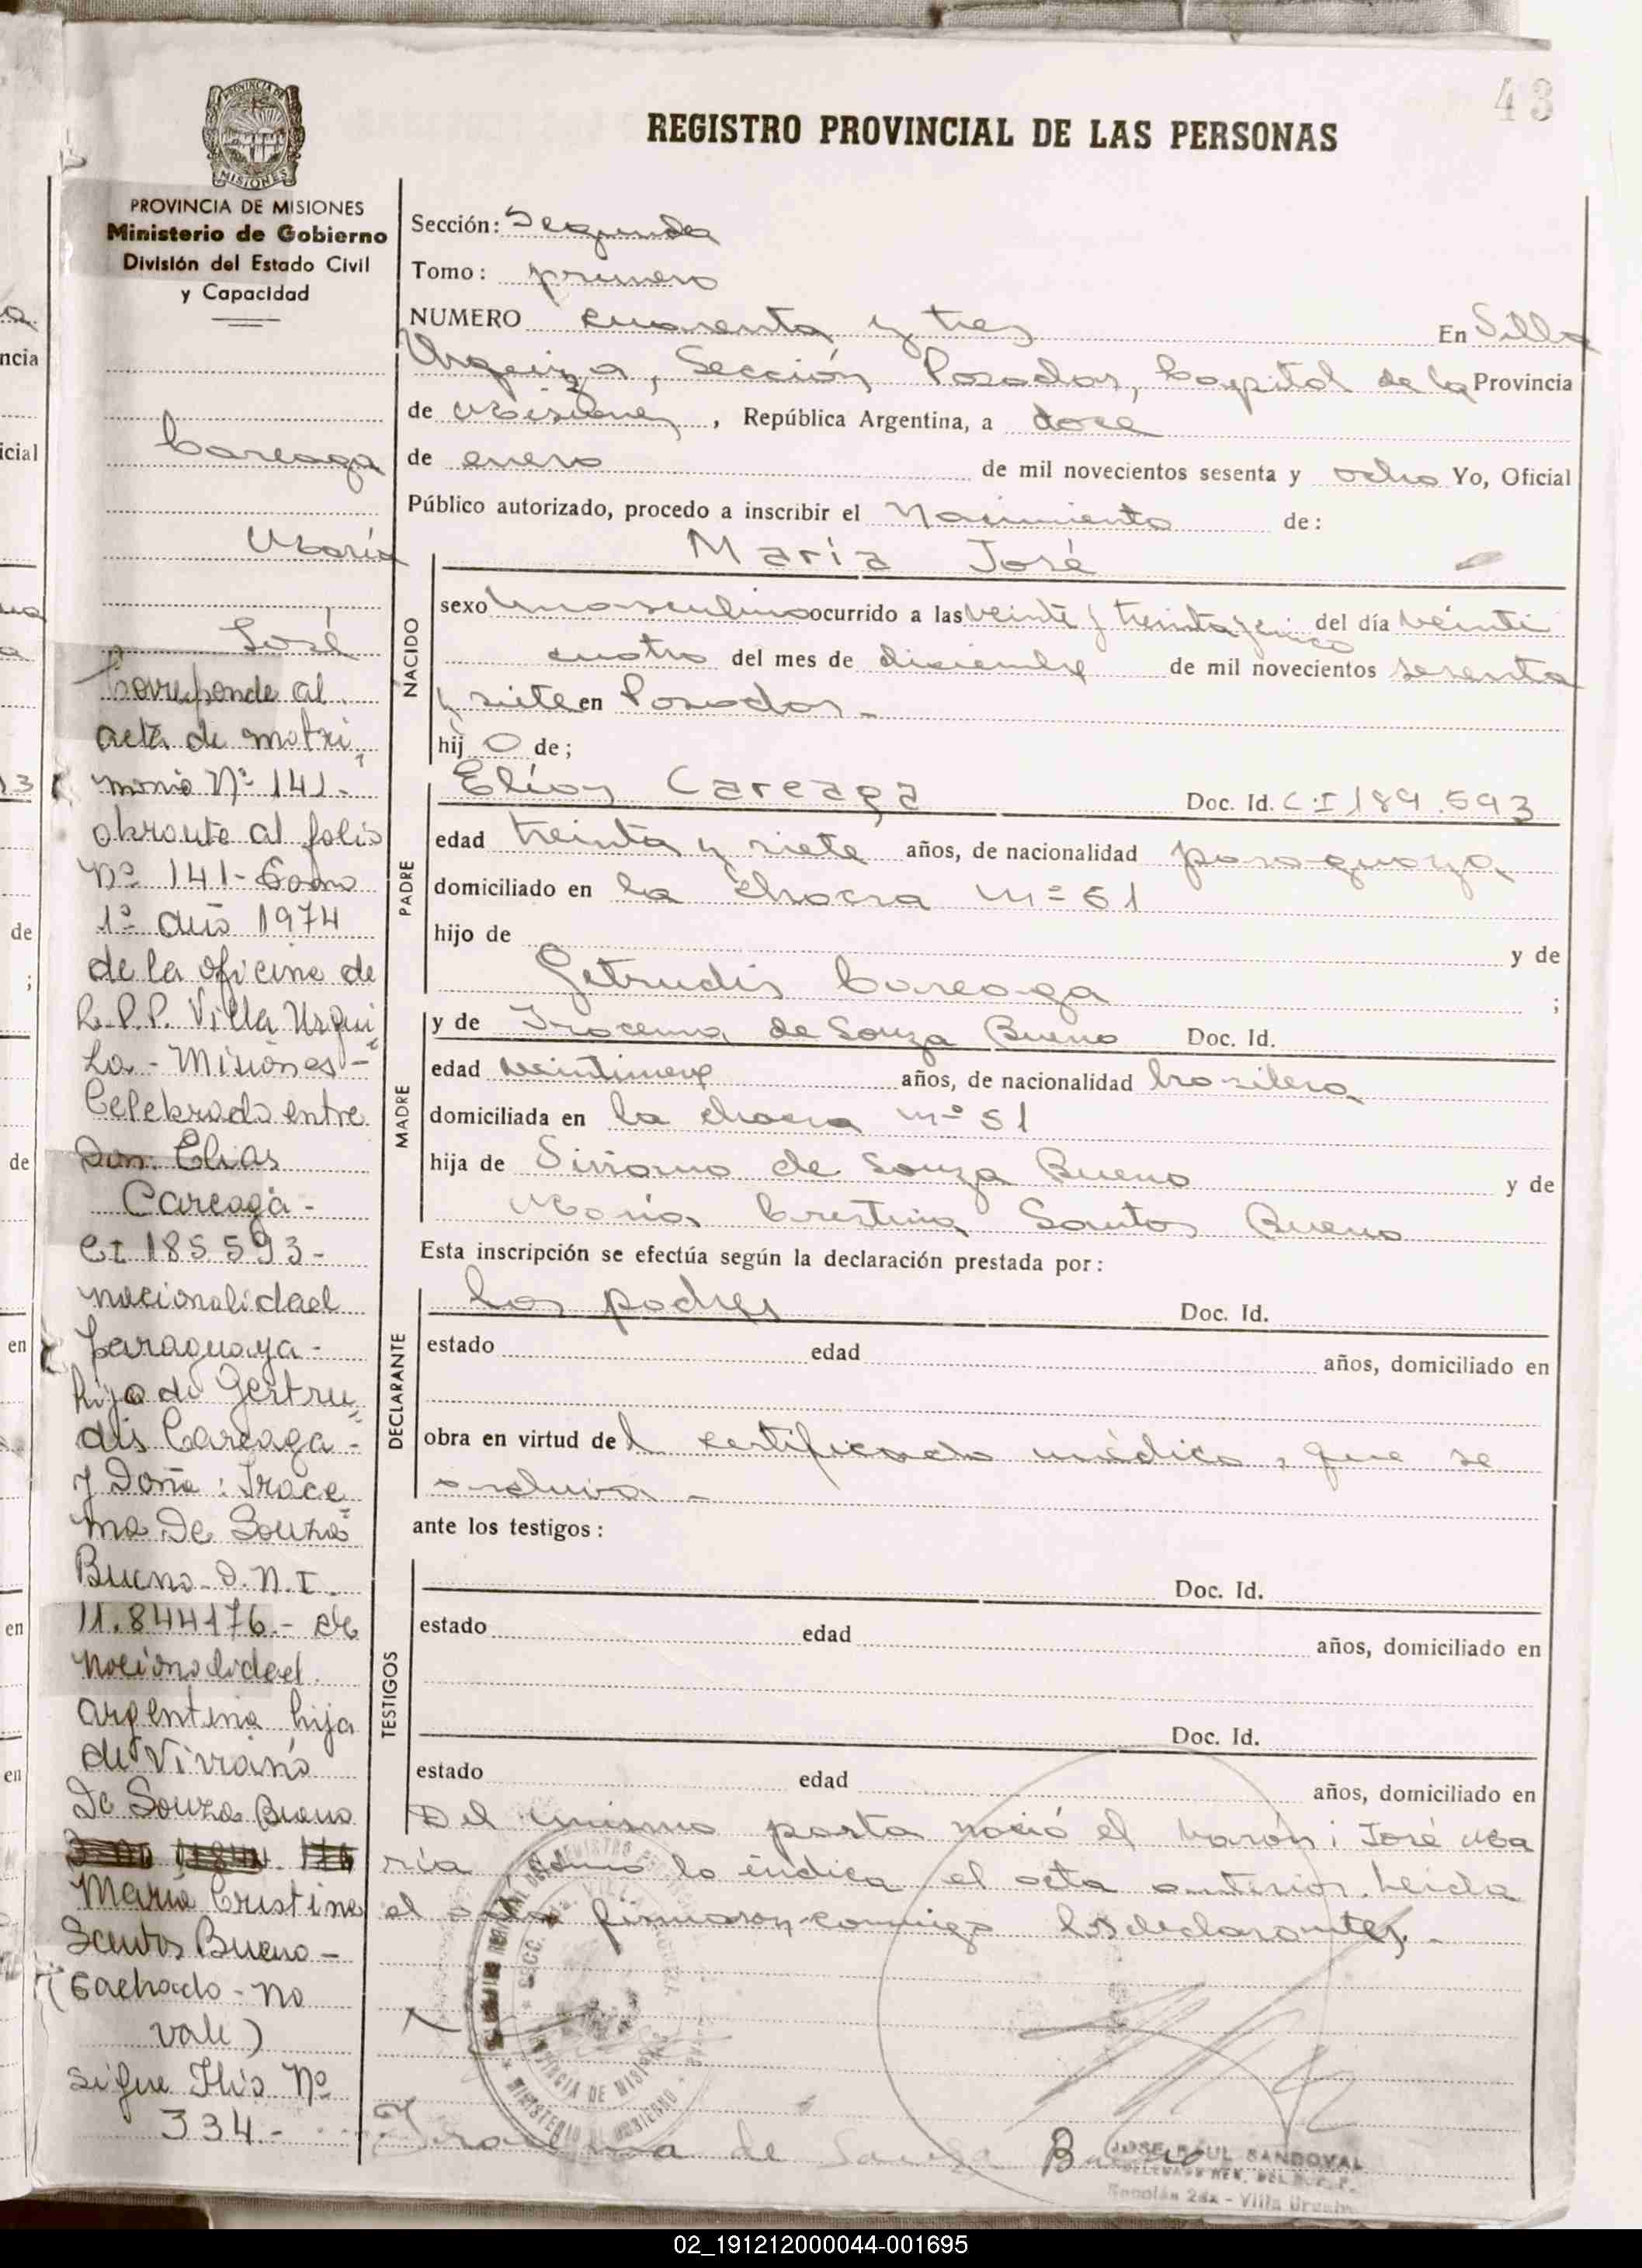 43
REGISTRO PROVINCIAL DE LAS PERSONAS
PROVINCIA DE MISIONES
Ministerio de Gobierno
División del Estado Civil
y Capacidad
Careaga
María
José
Corresponde al
acta de matri
monio Nº 141-
obrante al folio
Nº 141- Tomo
1º año 1974
de la oficina de
R.P.P. Villa Urqui
za - Misiones -
Celebrado entre
Don: Elias
Careaga -
CI 185593-
nacionalidad
Paraguaya -
hijo de Gertru
dis Careaga -
y Doña: Irace
ma De Souza
Bueno D.N.I.
11.844176.- de
nacionalidad
argentina hija
de Viriano
De Souza Bueno
María Cristina
Santos Bueno -
(Tachado - no
vale)
sigue folio Nº
334.-
Sección: Segunda
Tomo: primero
NUMERO cuarenta y tres En Villa
Urquiza, Sección Posadas, Capital de la Provincia
de Misiones, República Argentina, a doce
de enero de mil novecientos sesenta y ocho Yo, Oficial
Público autorizado, procedo a inscribir el Nacimiento de:
NACIDO
María José
sexo masculino ocurrido a las veinte y treinta y cinco del día veinti
cuatro del mes de diciembre de mil novecientos sesenta
y siete en Posadas.-
hijo de;
PADRE
Elías Careaga Doc. Id. C.I 189.593
edad treinta y siete años, de nacionalidad paraguaya
domiciliado en la chacra nº 61
hijo de y de
Getrudis Careaga ;
MADRE
y de Iracema de Souza Bueno Doc. Id.
edad veintinueve años, de nacionalidad brasilera
domiciliada en la chacra nº 61
hija de Siriano de Souza Bueno y de
María Crestina Santos Bueno
Esta inscripción se efectúa según la declaración prestada por:
DECLARANTE
los padres Doc. Id.
estado edad años, domiciliado en
obra en virtud del certificado médico, que se
archiva.-
ante los testigos:
TESTIGOS
Doc. Id.
estado edad años, domiciliado en
Doc. Id.
estado edad años, domiciliado en
Del mismo parto nació el varón; José Ma
ría como lo indica el acta anterior. Leida
el acta firmaron conmigo los declarantes.-
MINISTERIO DE GOBIERNO
PROVINCIA DE MISIONES
Iracema de Sauza Bueno
JOSE RAUL SANDOVAL
Sección 2da - Villa Urquiza
02_191212000044-001695